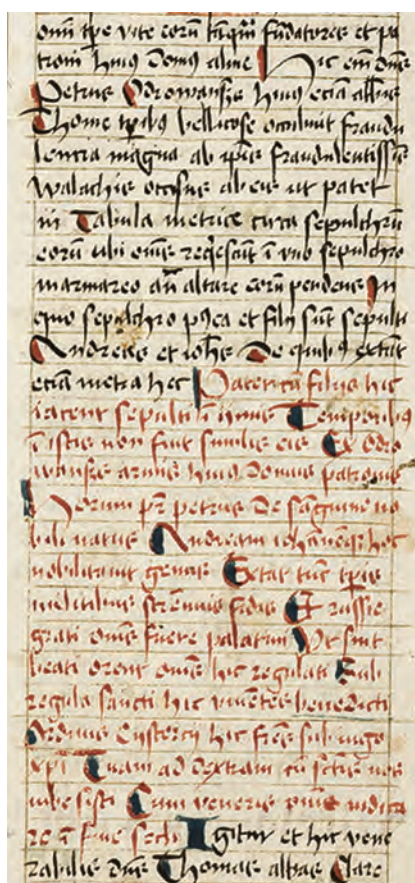 omni tpe vite eorum tamqm fundatores et pa
troni huius domus alme Hic eim dmus
Petrus Odrowansze huius eciam abbatis
Thome tpibus bellicose occubuit fraudu
lencia magna ab ipsis fraudulentissis
walachis occisus ab eis ut patet
in Tabula metrice circa sepulchrum
eorum ubi omnes reqescunt i uno sepulchro
marmareo an altare eorum pendens In
quo sepulchro postea et filii sunt sepulti
Andreas et iohes De quibus extant
ecia metra hec Pater cum filiis hic
iacent sepulti i humis Temporibus
i istis non fuit similis eis Ex odro
wansze armis huius domus patronus
Horum pr petrus de sanguine no
bili natus Andream iohannesqz hoc
nobilitauit genus Getas tunc tpis
militibus strennuis fidis Et russie
grati omes fuere palatini Ut sint
beati orent omes hic regulati Sub
regula sancti hic viuentes benedicti
Ordinis Cystercii hic fres sub iugo
xpi Tuam ad dextram cum sctis nos
iube sisti Cum veneris pius iudica
re i fine secli Igitur et hic vene
rabilis dns Thomas abbas Clare